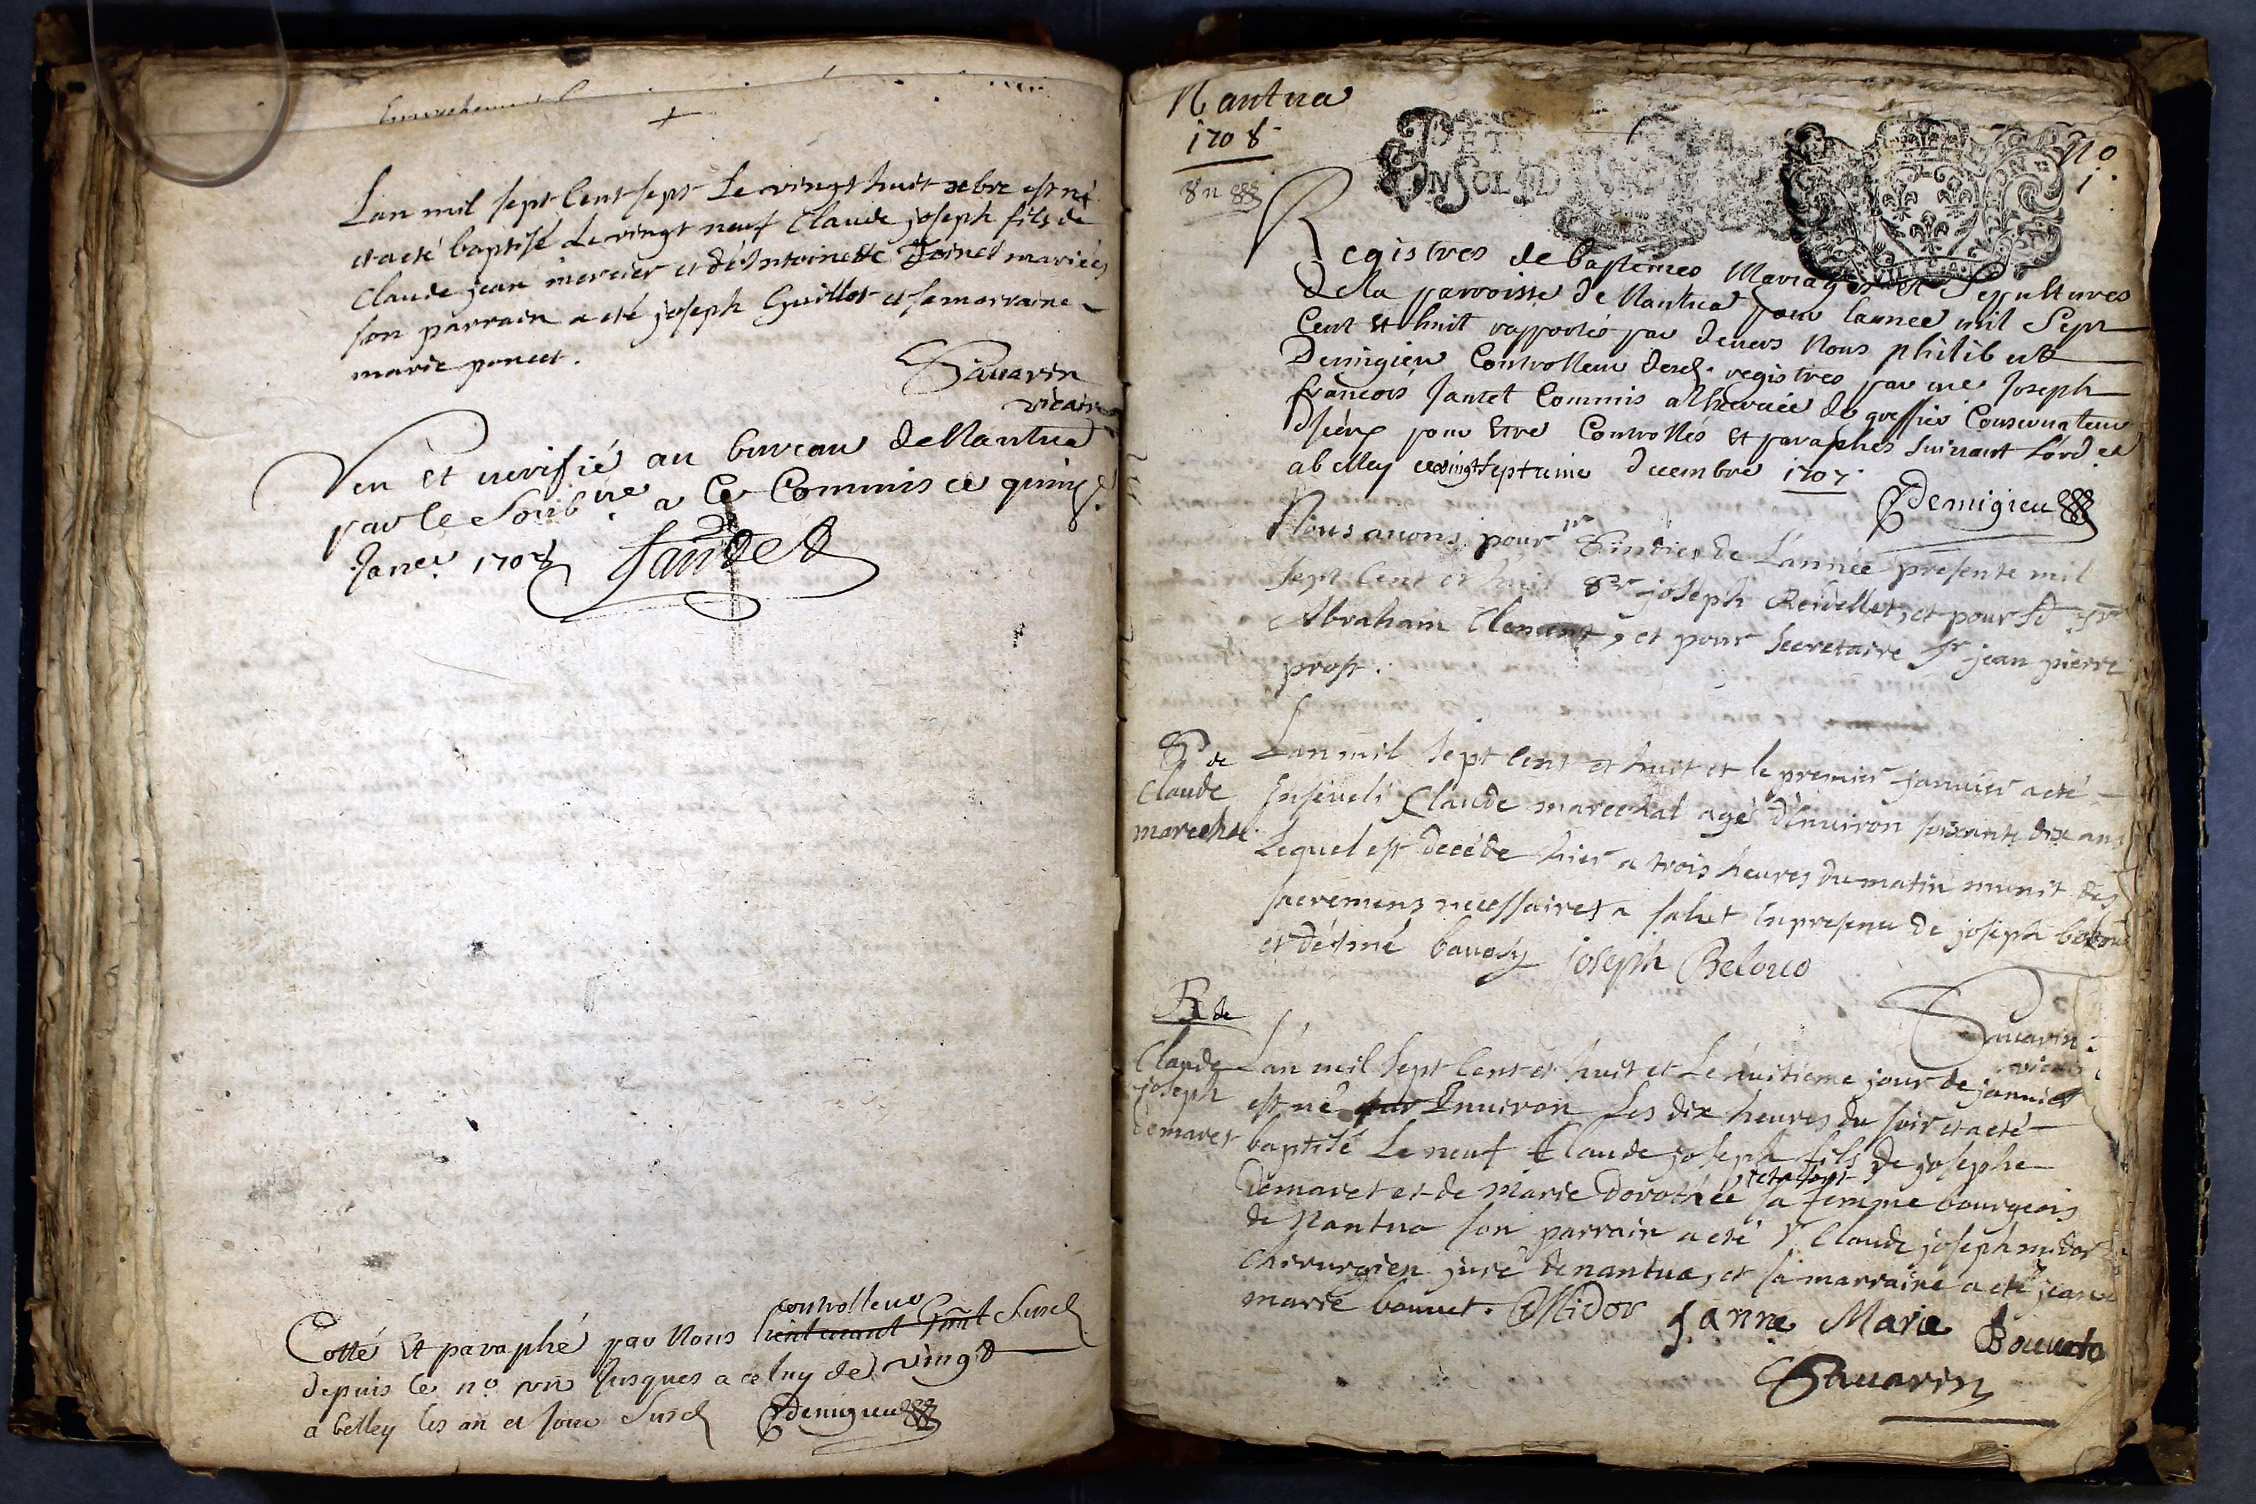 Lan mil sept Cent sept Le vingt huit xbre est né
et a eté baptisé Le vingt neuf Claude joseph fils de
Claude jean mercier et d'Antoinette Toinet mariés
son parrain a eté joseph Guillot et sa marraine
marie poncet.
Sauarin
vicaire
Veu Et verifié au bureau de Nantua
par le Soub ne a Ce Commis ce quinze
Janer. 1708 Jantet
Cotté Et paraphé par Nous controlleur Susd
depuis le no. un Jusques a celuy de vingt
a belley les an et Jour Susd Demigieu
Nantua
1708
8 n
GET
EN SOL D
No
1.
Registres de baptêmes Mariages et Sepultures
de la parroisse de Nantua pour lannée mil Sept
Cent Et huit rapportés par devers Nous philibert
Demigieu Controlleur desd. registres par me Joseph
françois Jantet Commis a l'exercice de greffier Conservateur
d'iceux pour Etre Controllés Et paraphés suivant l'ord. et
a belley ce vingt septieme decembre 1707.
Demigieu
Nous auons pour 1er Sindics de L'année presente mil
sept Cent et huit Sr joseph Reidellet, et pour Sd Sr
Abraham Clement, et pour Secretaire Sr jean pierre
prost.
Sr de
Claude
marechal
Lan mil sept Cent et huit et le premier janvier a eté
Inseueli Claude marechal agé d'enuiron soixante dix ans
Lequel est decédé hier a trois heures du matin munit des
sacremens necessaires a salut En presence de joseph belouz
et d'edmé bauozy joseph Belouo
Sauarin
vicaire
B. de
Claude
joseph
demaret
Lan mil Sept Cent et huit et Le huitieme jour de januier
est né sur Enuiron Les dix heures du soir et a eté
baptisé Le neuf Claude joseph fils de josephe
demaret et de Marie dorothée sa femme bourgeois
de Nantua son parrain a eté Sr Claude joseph midor
chirurgien juré de nantua, et sa marraine a eté jeane
marie bouuet. Midor Janne Marie Bouueto
Sauarin